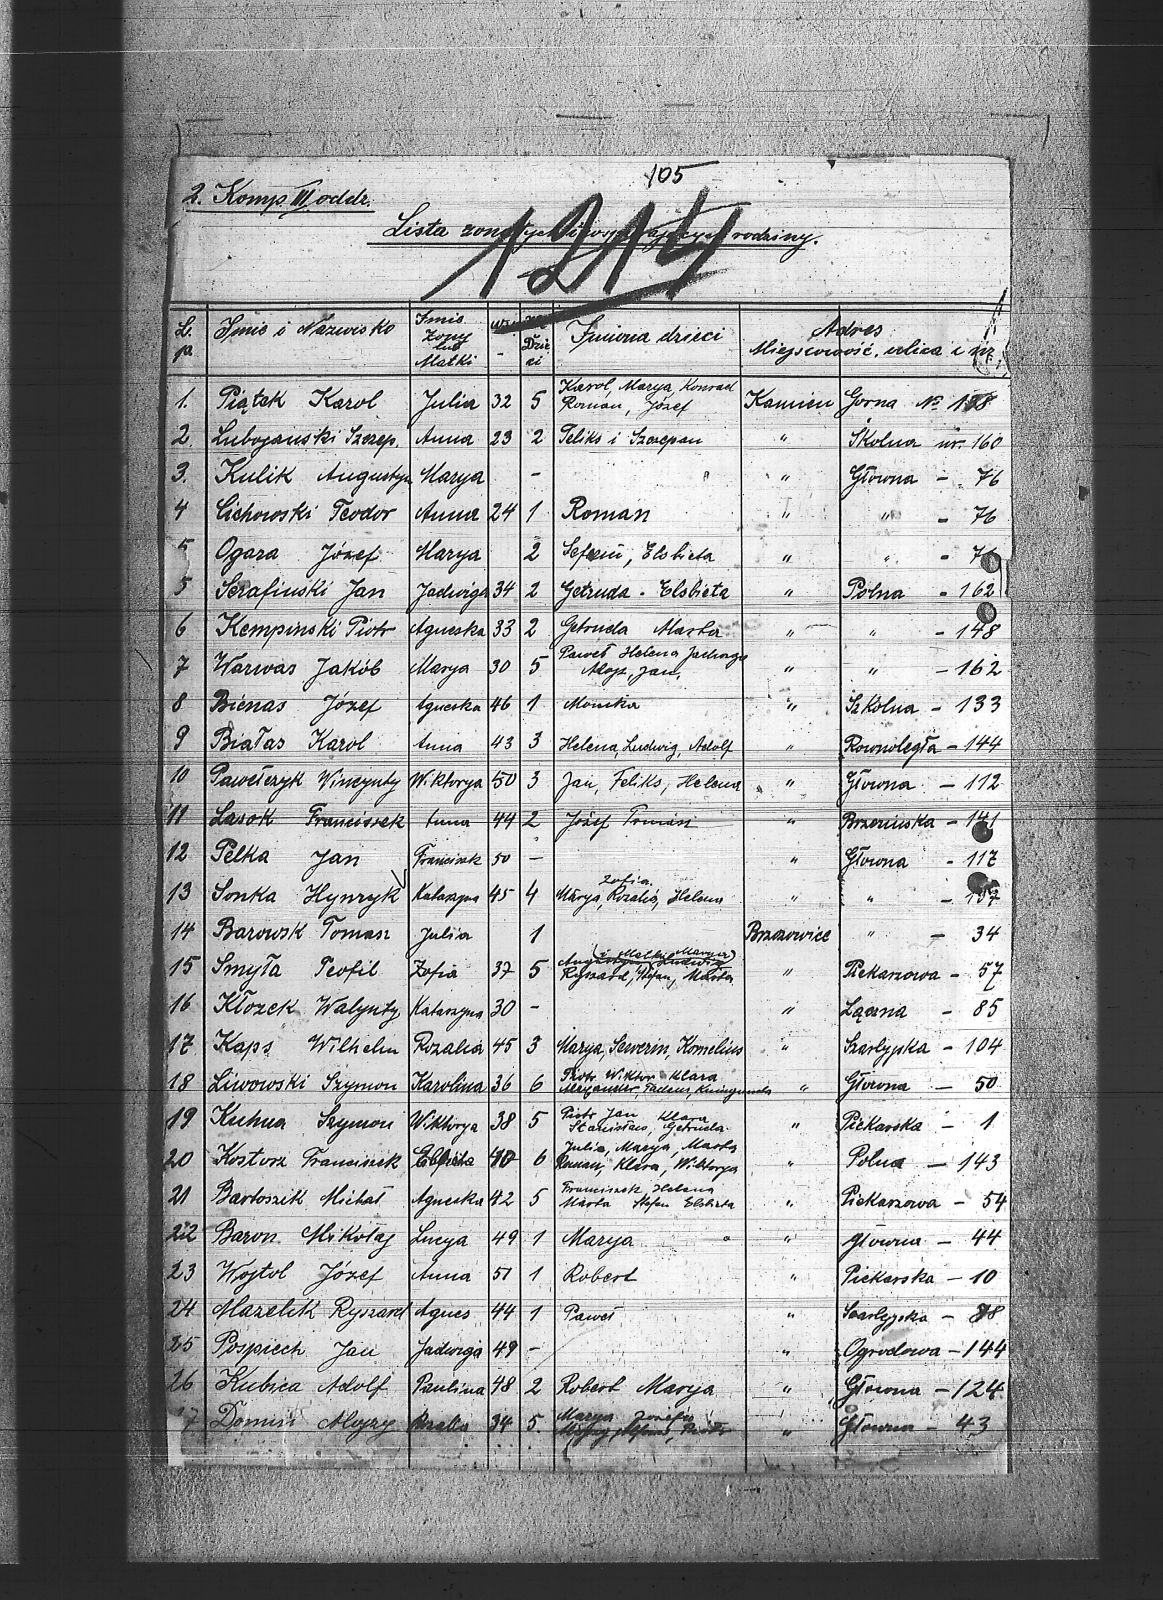 105
2. Komp. III oddz.
1214
Lista rodziny.
L. p. Imię i Nazwisko Imię Żony lub Matki Dzieci Imiona dzieci Adres Miejscowość, ulica i nr.
1. Piątek Karol Julia 32 5 Karol, Marya, Konrad Roman, Józef Kamień Gorna No
2 Lubojański Szczep. Anna 23 2 Feliks i Szczepan " Skolna nr. 160
3. Kulik Augustyn Marya - " Głowna - 76
4 Cichowski Teodor Anna 24 1 Roman " " - 76
5 Ogaza Józef Marya 2 Elsbieta " " -
5 Serafinski Jan Jadwiga 34 2 Getruda - Elsbieta " Polna - 162
6 Kempinski Piotr Agneska 33 2 Getruda Marta " " - 148
7 Warwas Jakób Marya 30 5 Paweł Helena Jadwiga Alojz, Jan, " " - 162
8 Bienas Józef Agneska 46 1 Monika " Szkolna - 133
9 Białas Karol Anna 43 3 Helena, Ludwig, Adolf " Rownoległa - 144
10 Pawełczyk Wincynty Wiktorya 50 3 Jan, Feliks, Helena " Głowna - 112
11 Lasok Franciszek Anna 44 2 Józef Tomasz " Brzezinska - 141
12 Pelka Jan Franciszk 50 - " Głowna - 117
13 Sonka Hynryk Katarzyna 45 4 Zofia Marya, Rozalia, Helena " " - 137
14 Barowsk Tomasz Julia 1 Brzozowice " - 34
15 Smyła Teofil Zofia 37 5 Ryszard, Stefan, Marta " Piekarzowa - 57
16 Kłozek Walynty Katarzyna 30 - " Łączna - 85
17 Kaps Wilhelm Rozalia 45 3 Marya, Sewerin, Kornelius " Szarlyjska - 104
18 Liwowski Szymon Karolina 36 6 Piotr Wiktor Klara Alexander, Tadeus, Kunigunda " Głowna - 50
19 Kuhna Szymon Wiktorya 38 5 Piotr Jan Klara Stanisław, Getruda " Piekarska - 1
20 Kostorz Franciszek Elsbieta 40 6 Julia, Marya, Marta Roman, Klara, Wiktorya " Polna - 143
21 Bartoszik Michał Agneska 42 5 Franciszek Helena Marta Stefan Elsbieta " Piekarzowa - 54
22 Baron Mikołaj Lucya 49 1 Marya " Głowna - 44
23 Wojtol Józef Anna 51 1 Robert " Piekarska - 10
24 Mazelik Ryszard Agnes 44 1 Paweł " Szarlyjska -
25 Pospiech Jan Jadwiga 49 - " Ogrodowa - 144
26 Kubica Adolf Paulina 48 2 Robert Marya " Głowna - 124
Alojzy 34 5. Marya Józefa Piotr " Głowna - 43